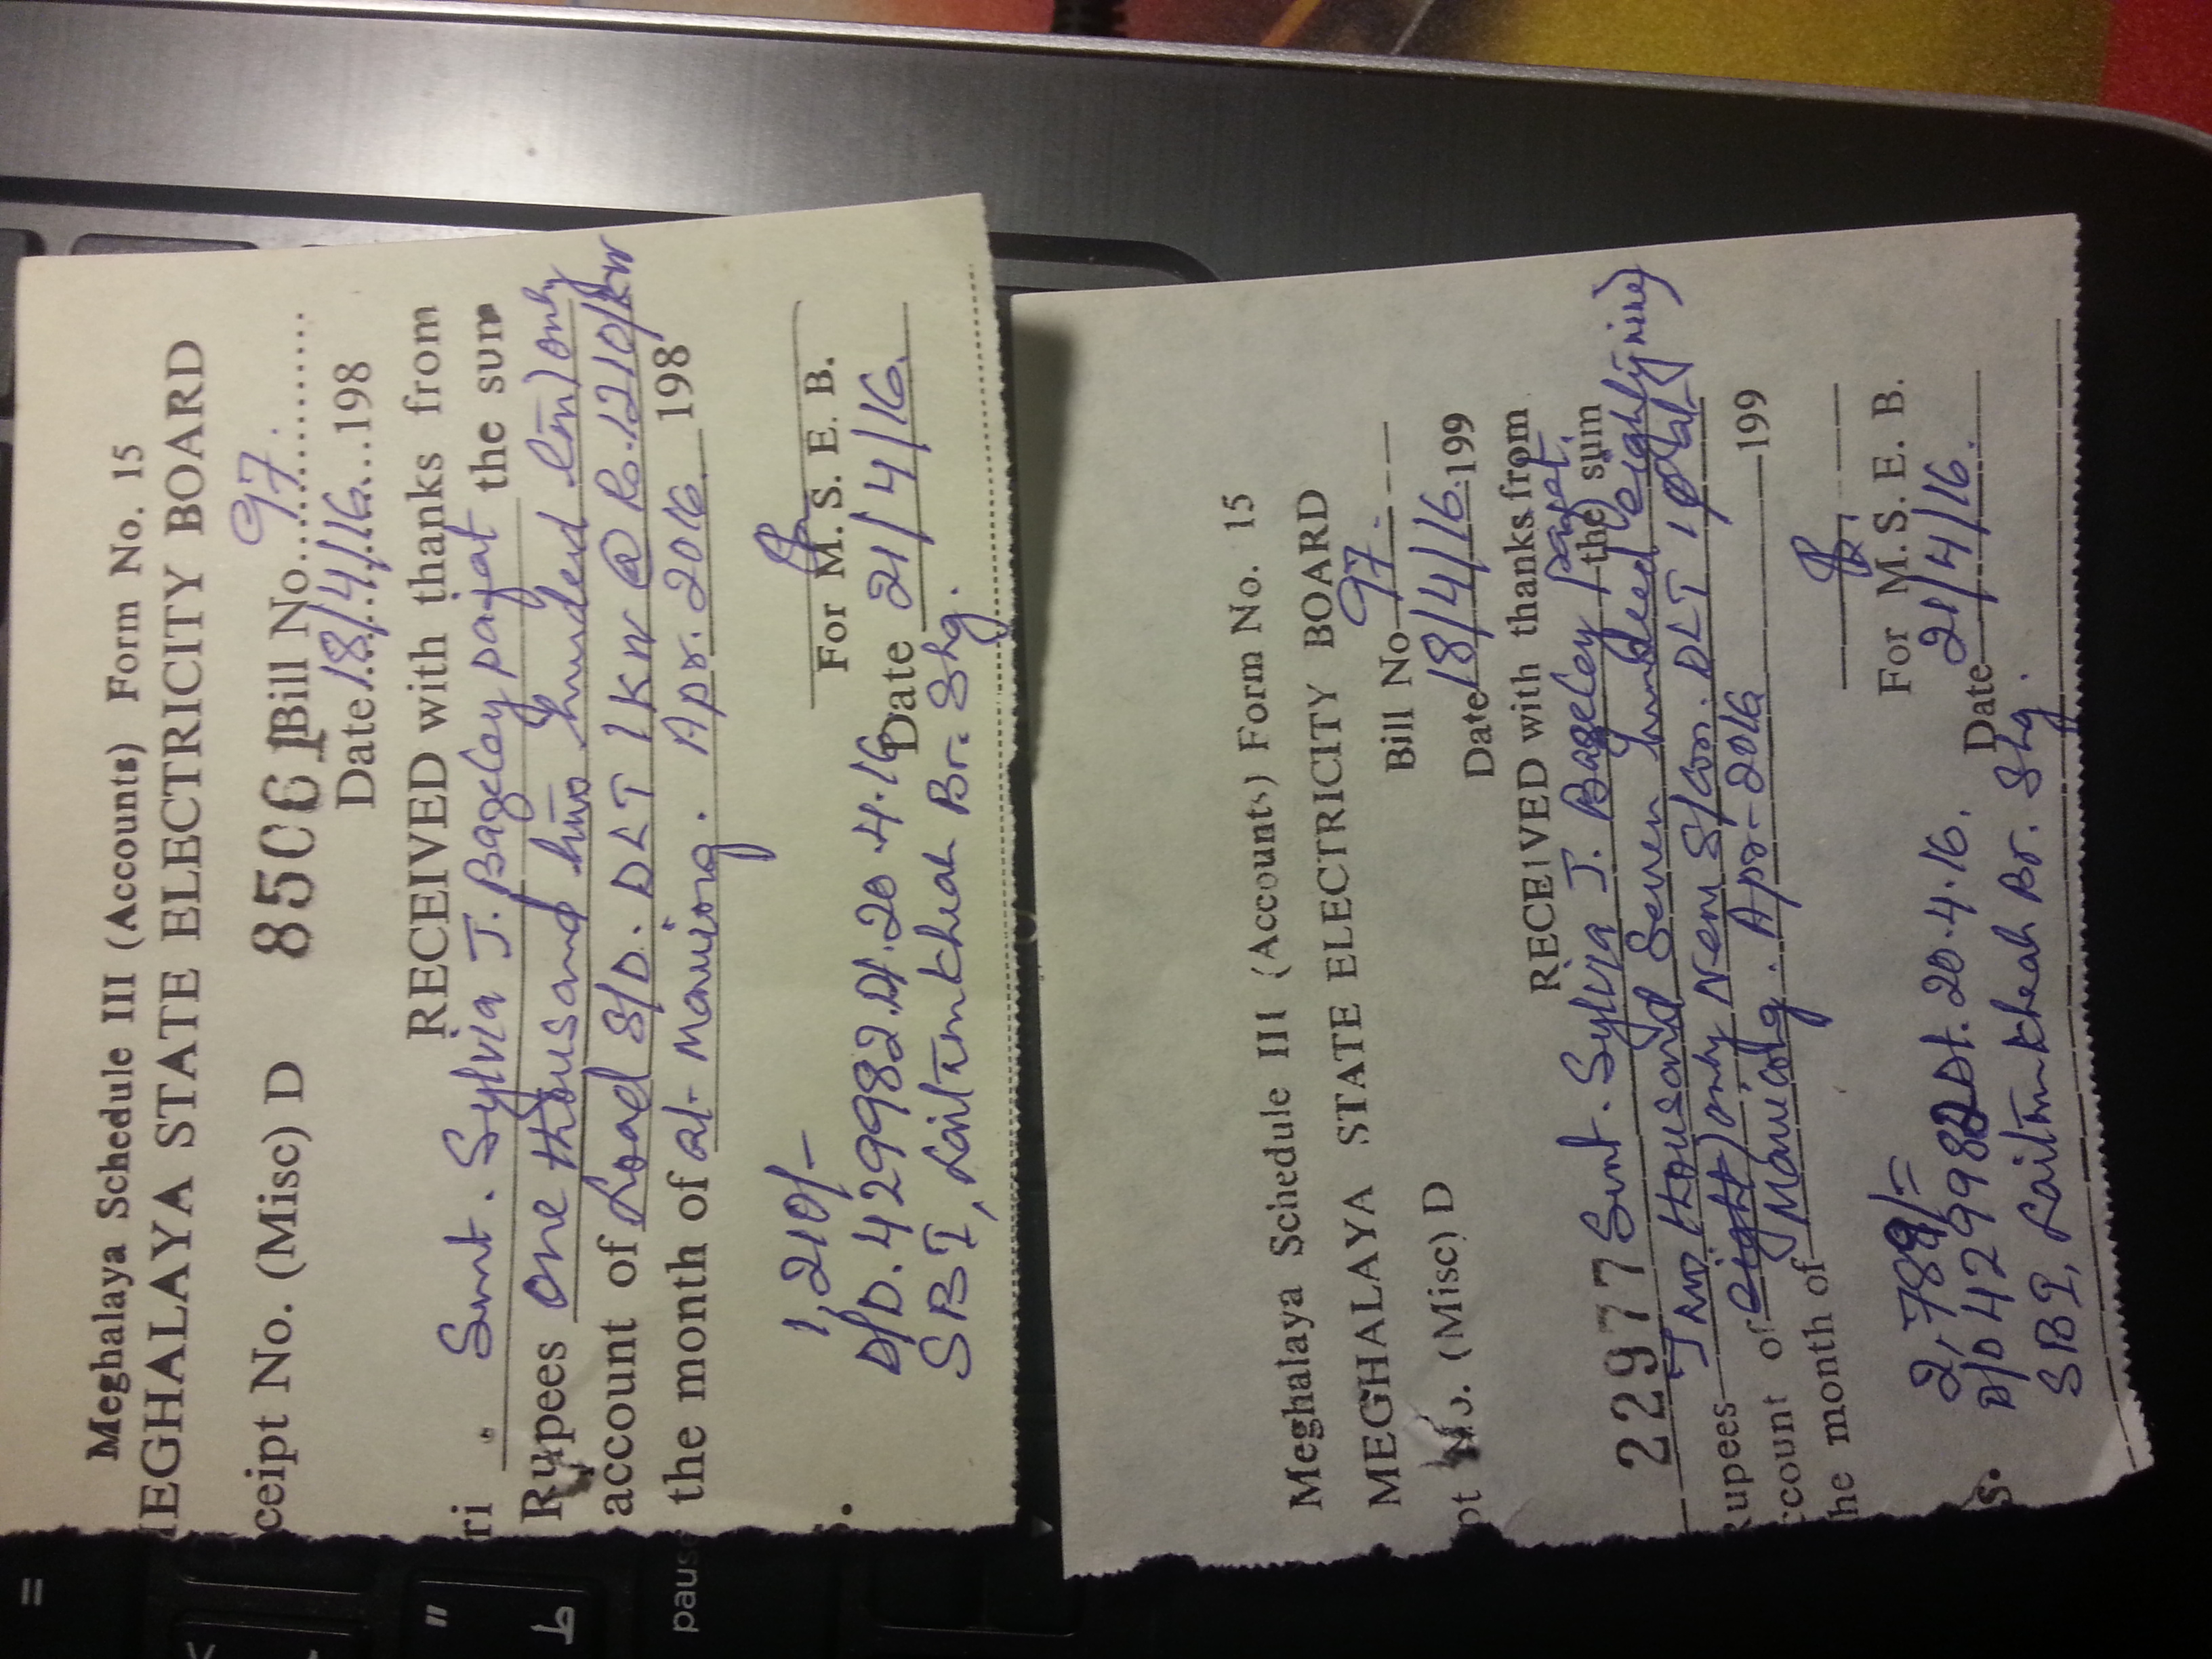 Meghalaya Schedule III (Accounts) Form No. 15
IEGHALAYA STATE ELECTRICITY BOARD
ceipt No. (Misc) D 85061 Bill No. 97.
Date 18/4/16 198
RECEIVED with thanks from
ri Smt. Sylvia J. Bageley pajat the sum
Rupees One thousand two hundred ten) only
account of Load S/D. DLT 1KW @ Rs. 1210/kw
the month of at- Mawiong. Apr. 2016 198
For M. S. E. B.
1,210/-
D/D. 429982. dt. 20.4.16 Date 21/4/16.
SBI, Laitumkhrah Br. Shg.
Meghalaya Schedule III (Accounts) Form No. 15
MEGHALAYA STATE ELECTRICITY BOARD
pt No. (Misc) D Bill No 97.
Date 18/4/16. 199
RECEIVED with thanks from
22977 Smt. Sylvia J. Bageley Pajat. the sum
Rupees Two thousand Seven hundred eighty nine)
ccount of only New S/Con. DLT
he month of Mawiong. Apr-2016 199
For M.S.E.B.
s. 2,789/=
D/D 429982 Dt. 20.4.16. Date 21/4/16.
SBI, Laitumkhrah Br. Shg.
=
"
pause